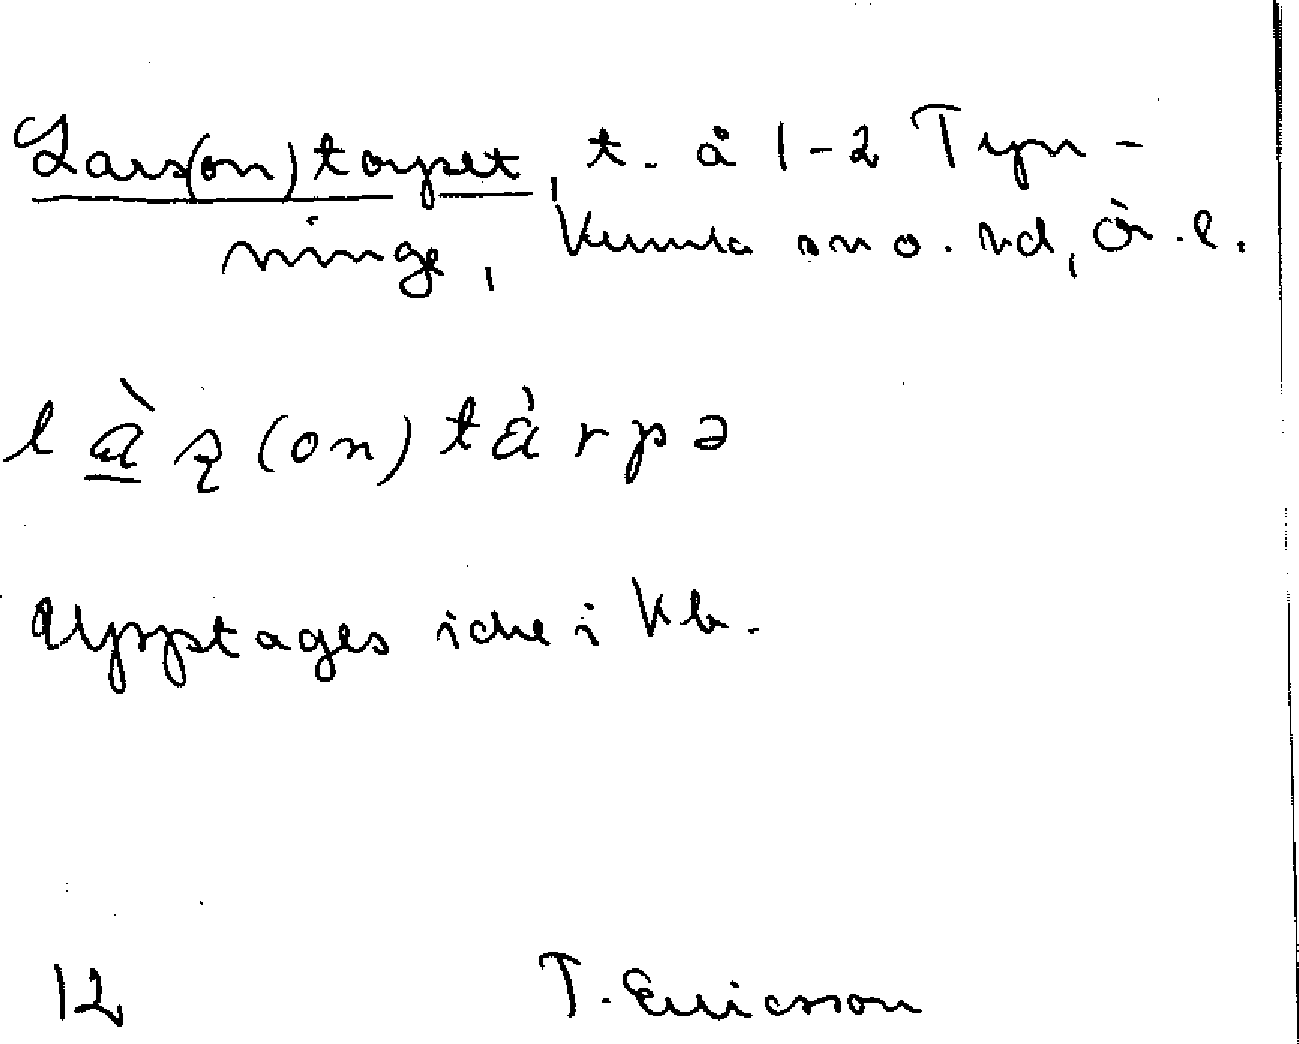 Lars(on)torpet, t. å 1-2 Tyn-
ninge, Kumla sn o. hd, Ör. l.
là̱ʂ(on)tȧ̀rpə
Upptages icke i Kb.
12 T. Ericsson